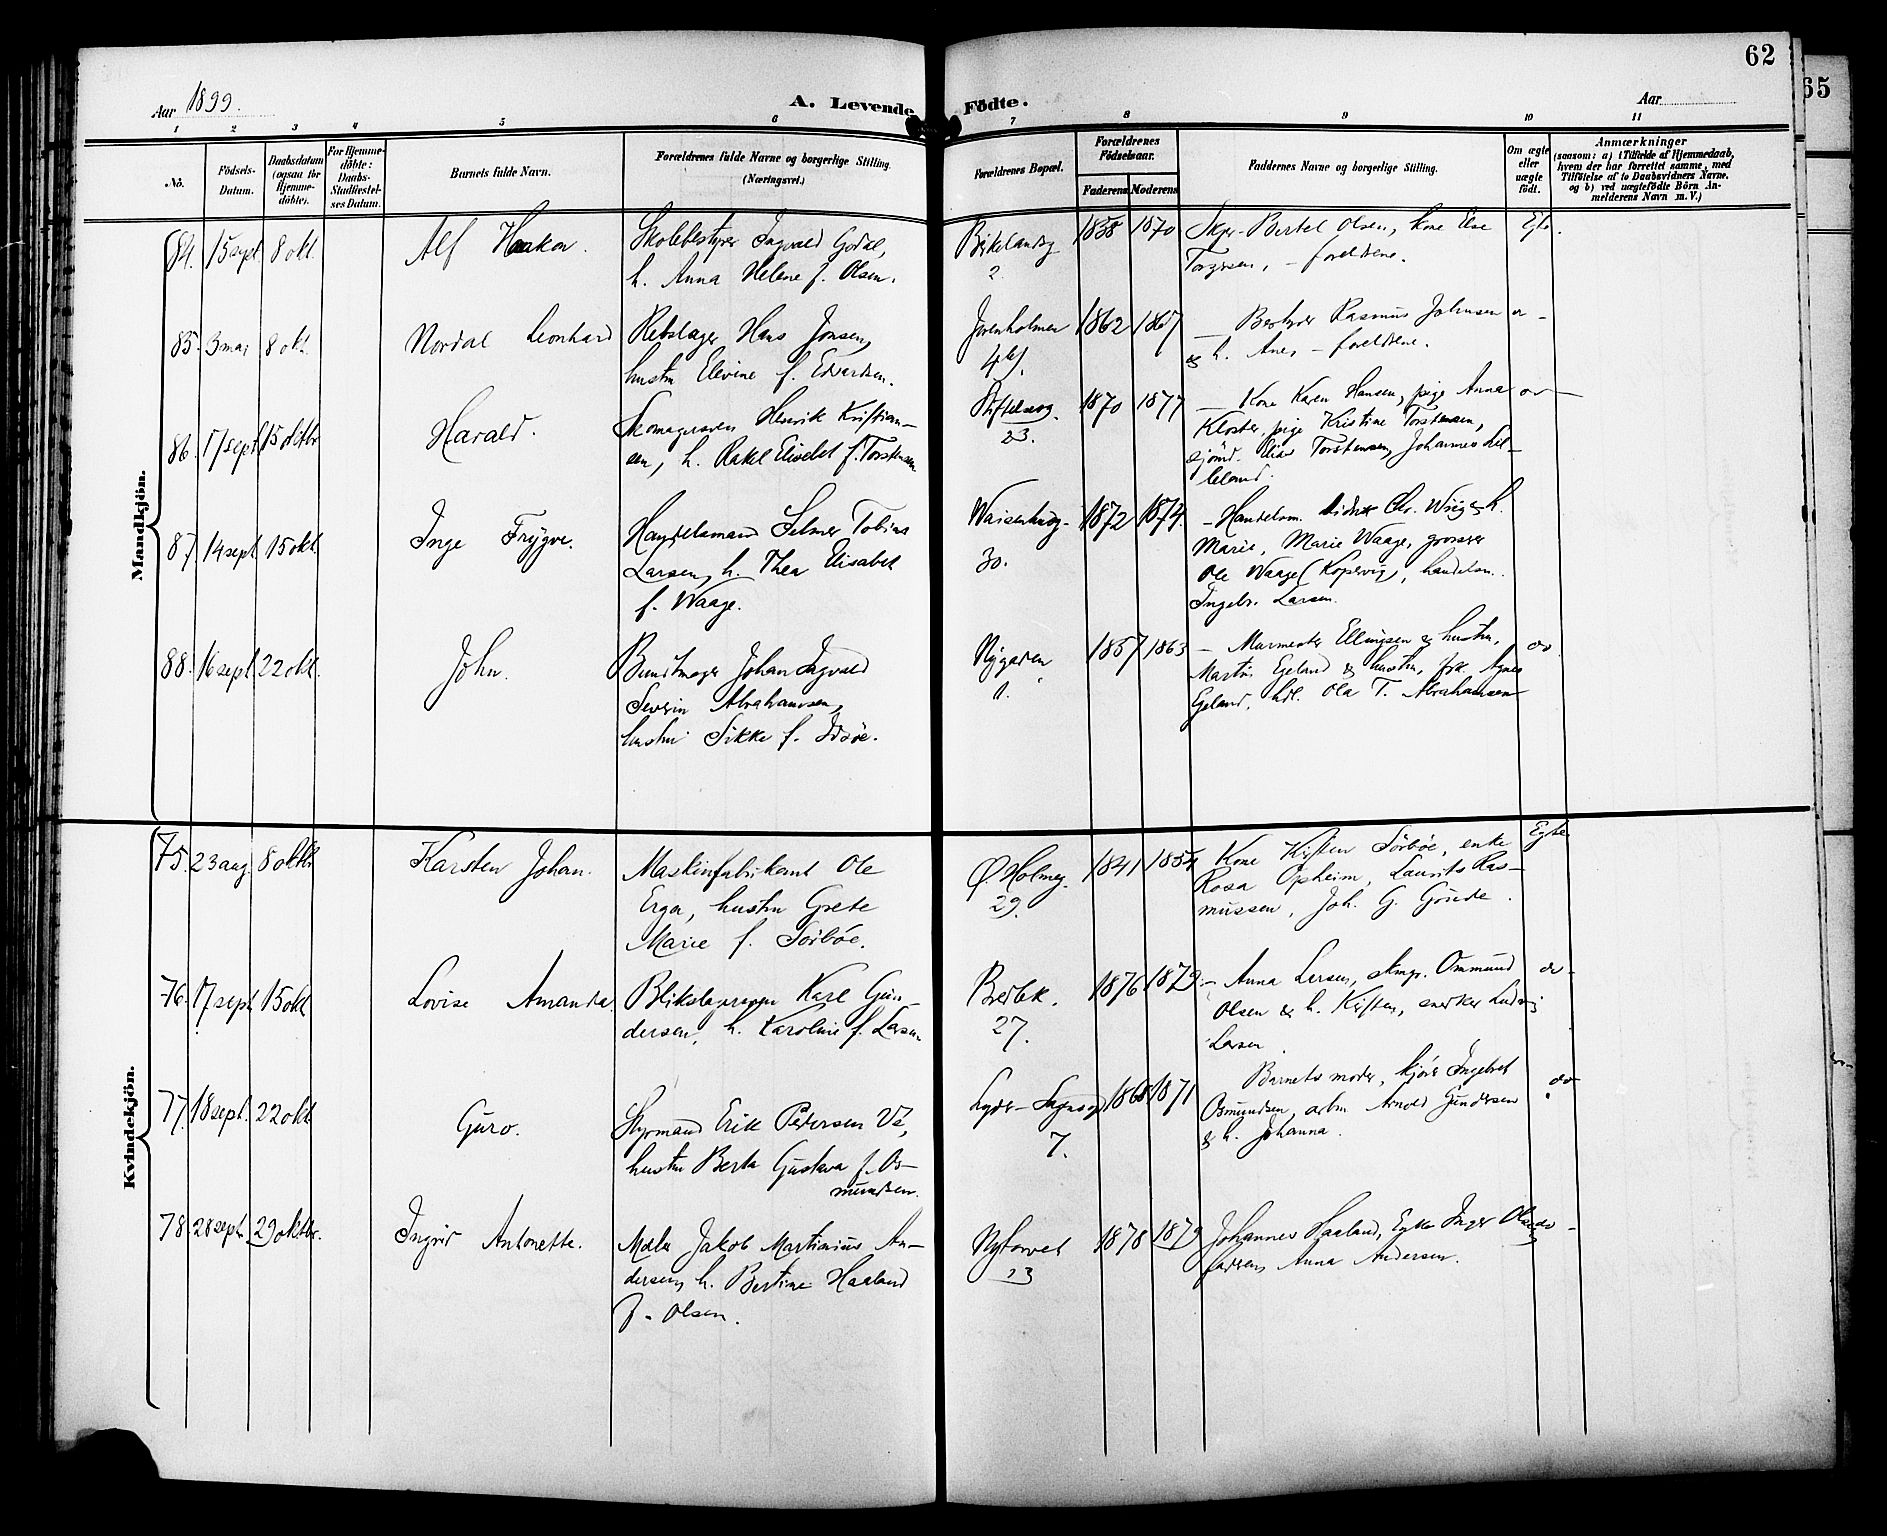 62
65
Aar 1899.
A. Levende Födte.
Aar
1 2 3 4 5 6 7 8 9 10 11
No.
Födsels-
Datum.
Daabsdatum
(ogsaa for
Hjemme-
döbte).
For Hjemme-
döbte:
Daabs-
Stadfæstel-
ses Datum.
Barnets fulde Navn.
Forældrenes fulde Navne og borgerlige Stilling.
(Næringsvei.)
Forældrenes Bopæl.
Forældrenes
Födselsaar.
Faderens
Moderens
Faddernes Navne og borgerlige Stilling.
Om ægte
eller
uægte
födt.
Anmærkninger
(saasom: a) i Tilfælde af Hjemmedaab,
hvem der har forrettet samme, med
Tilföielse af to Daabsvidners Navne.
og b) ved uægtefödte Börn An-
melderens Navn m. V.)
Mandkjön.
84. 15 sept 8 okt. Alf Haakon.
Skolebestyrer Ingvald Godal,
h. Anna Helene f. Olsen.
Birkelandsg
2.
1838 1870
Skpr. Bertel Olsen, kone Else
Torgersen, - forældrene.
Egte.
85. 3 mai 8 okt. Nordal Leonhard
Rebslager Hans Jonsen,
hustru Elevine f. Edvardsen.
Jorenholmen
1862 1867
- Rasmus Johnsen
& h. Ane, - forældrene.
do -
86. 17 sept 15 oktbr Harald.
Skomagersven Henrik Kristian-
sen, h. Rakel Elisebet f. Torstensen
Stiftelsesg.
23.
1870 1877
- Kone Karen Hansen, pige Anna
Kloster, pige Kristine Torstensen,
sjömd. Elias Torstensen, Johannes Lil-
leland.
do -
87. 14 sept 15 okt. Inge Trygve.
Handelsmand Selmer Tobias
Larsen, h. Thea Elisabet
f. Waage.
Waisenhusg.
30.
1872 1874.
- Handelsm. Chr. Wiig & h.
Marie, Marie Waage, grosser
Ole Waage (Kopervig), handelsm.
Ingebr. Larsen.
88. 16 sept 22 okt. John.
Buntmager Johan Ingvald
Severin Abrahamsen,
hustru Sikke f. Idsöe.
Nygaden
1.
1857 1863
- Murmester Ellingsen & hustru,
Martin Egeland & hustru, frk. Agnes
Egeland, hdl. Ola T. Abrahamsen
do.
Kvindekjön.
75. 23 aug 8 oktbr Karsten Johan.
Maskinfabrikant Ole
Erga, hustru Grete
Marie f. Sörböe.
Ø. Holmeg.
29.
1841 1854
Kone Kirsten Sörböe, enke
Rosa Opheim, Laurits Ras-
mussen, Joh. G. Göude.
Egte
76. 17 sept 15 okt Lovise Amanda
Blikslagersven Karl Gun-
dersen, h. Karoline f. Larsen
Bredbk.
27.
1876 1872.
- Anna Larsen, skmgr. Ommund
Olsen & h. Kirsten, snekker Ludvig
Larsen
do -
77. 18 sept. 22 okt Guro.
Styrmand Erik Petersen Vå,
hustru Berta Gustava f. Os-
mundsen.
Lyder-Sagensg
7.
1868 1871
Barnets moder, Ingebret
Osmundsen, arbm Arnold Gundersen
& h. Johanna.
do
78. 28 sept. 29 oktbr. Ingrid Antonette.
Maler Jakob Martinius An-
dersen, h. Bertine Haaland
f. Olsen.
Nytorvet
13
1878 1879
Johannes Haaland, Enke Inger Olsen,
Anna Andersen.
do -